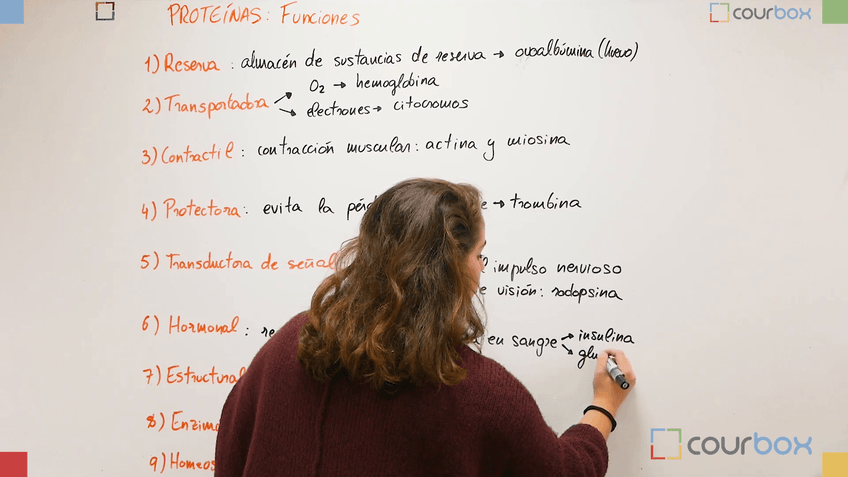 PROTEÍNAS: Funciones
courbox
1) Reserva: almacén de sustancias de reserva → ovoalbúmina (huevo)
O₂ → hemoglobina
2) Transportadora
electrones → citocromos
3) Contractil: contracción muscular: actina y miosina
4) Protectora: evita la → trombina
5) Transductora de señal impulso nervioso
visión: rodopsina
6) Hormonal: en sangre → insulina
7) Estructural
8)
9)
courbox